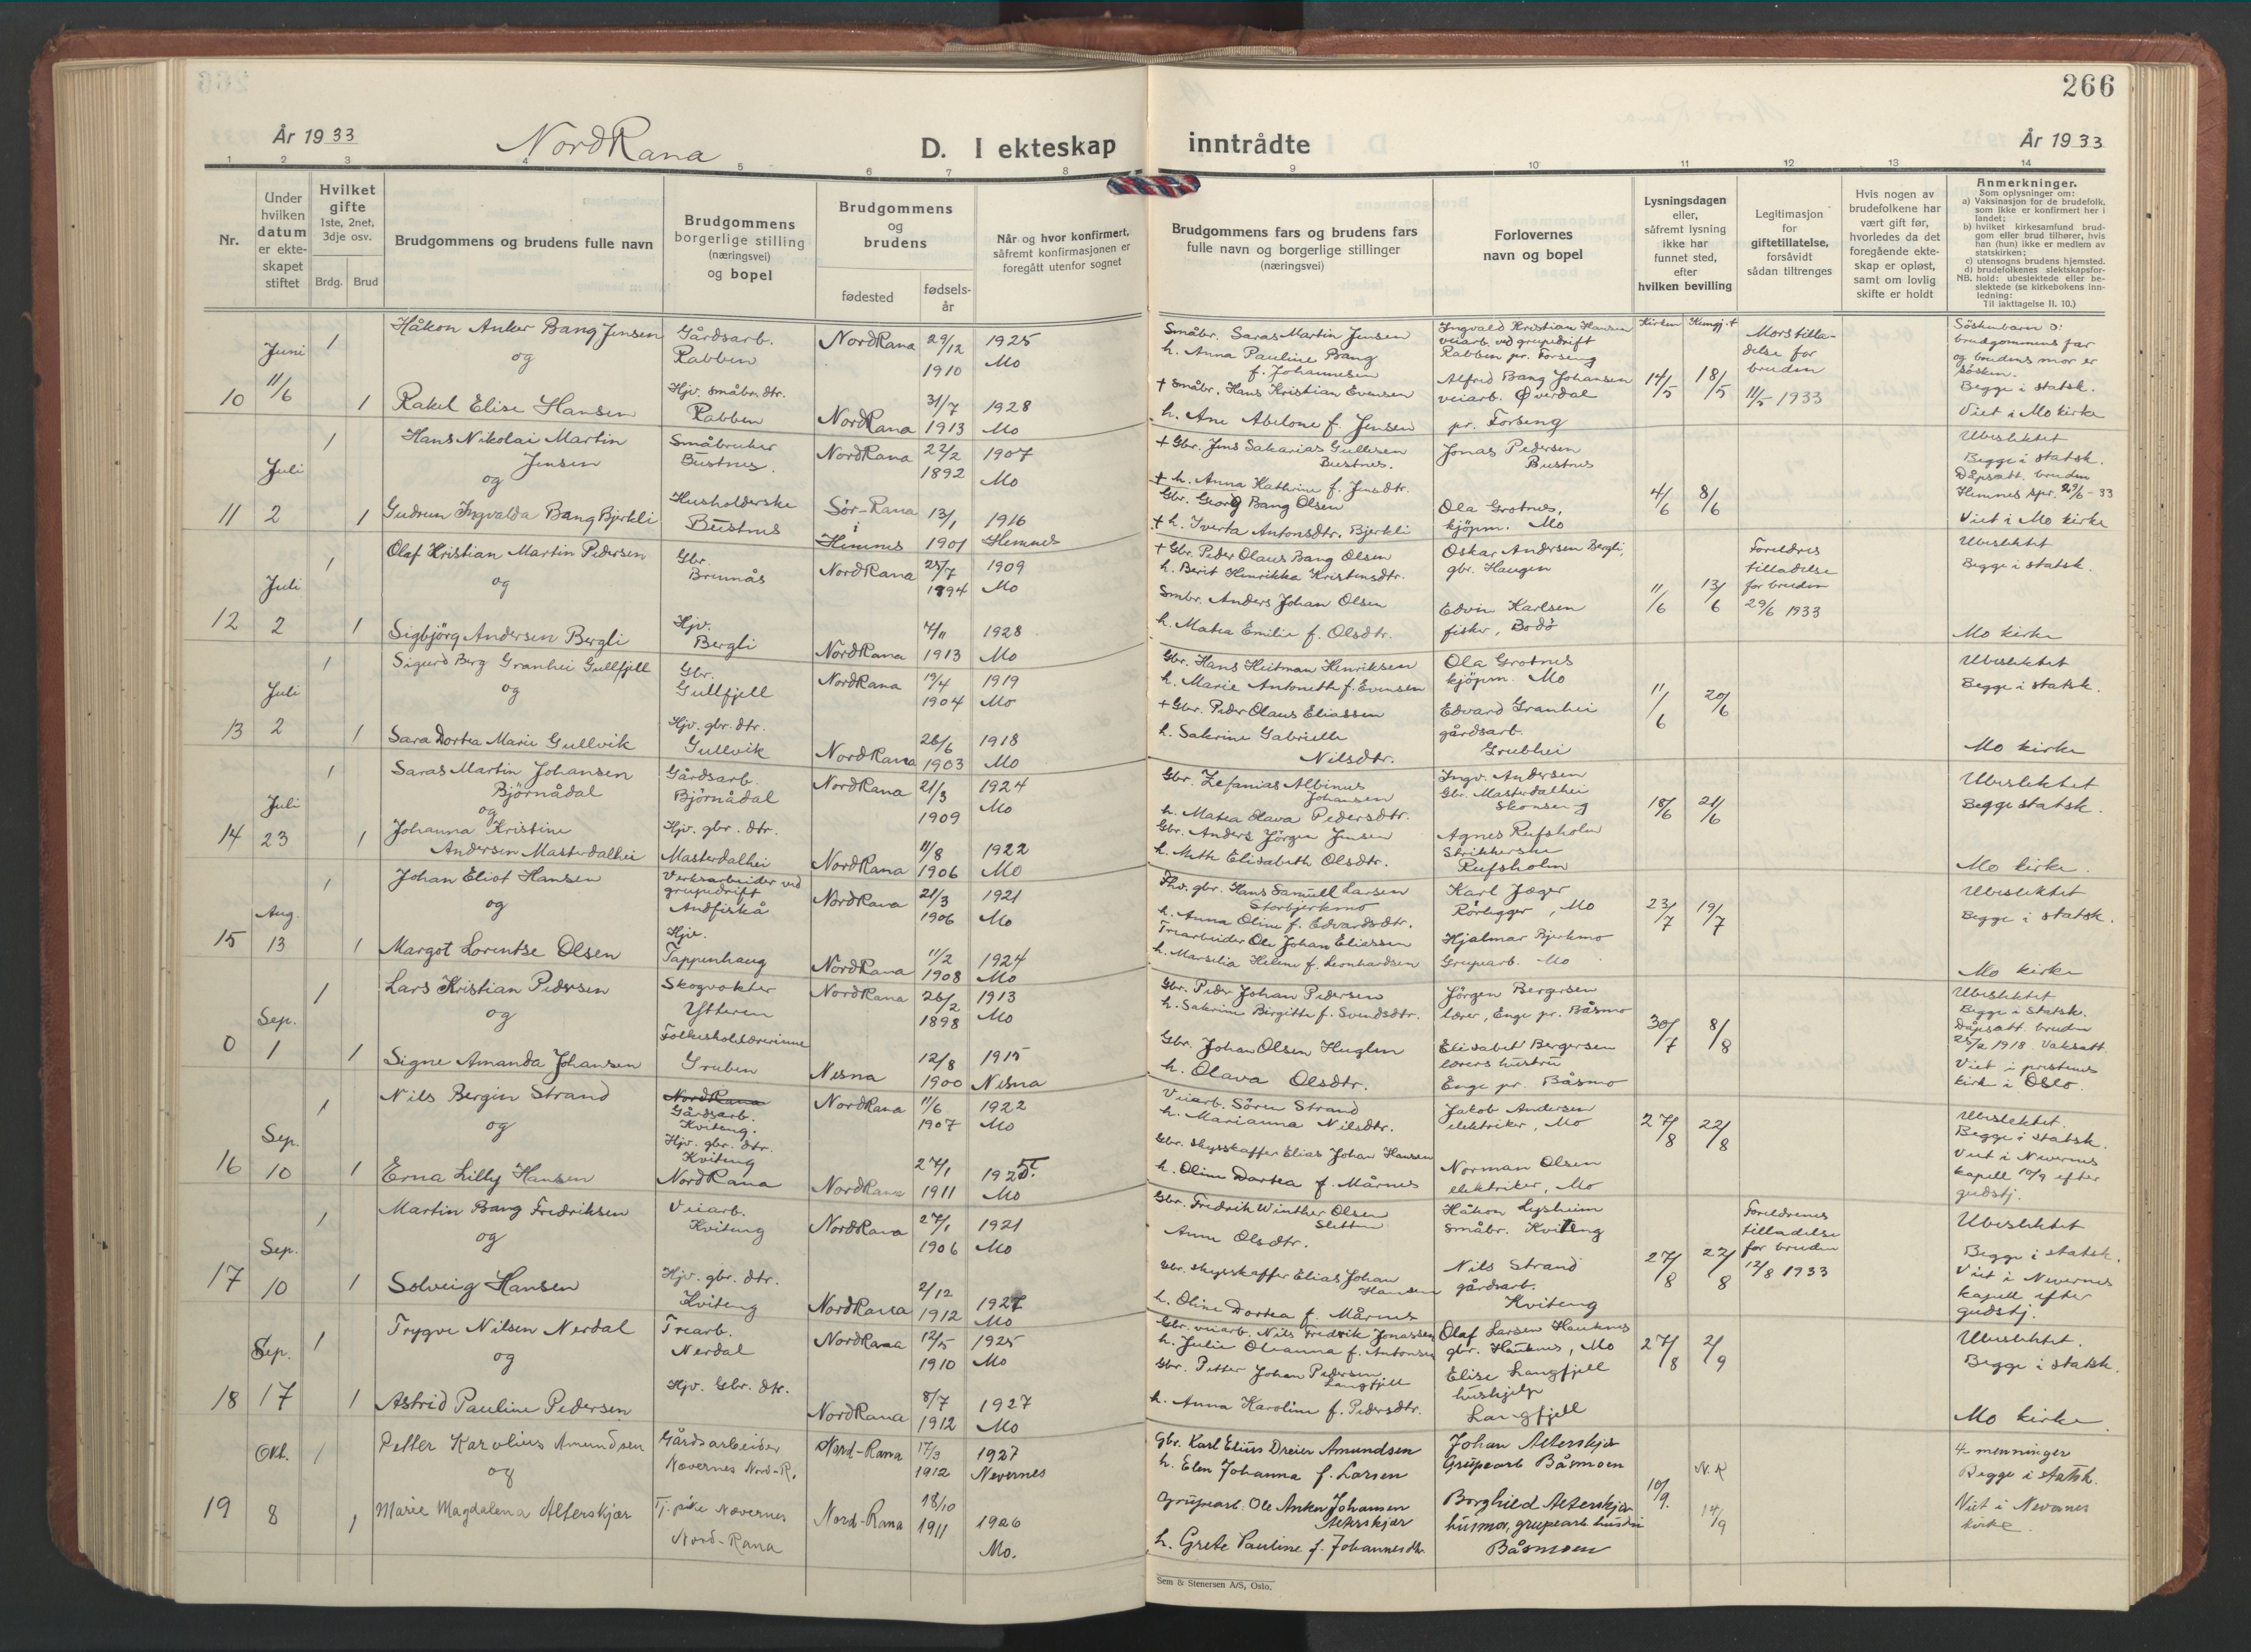 266
År 1933
NordRana
D. I ekteskap inntrådte
År 1933
1 2 3 4 5 6 7 8 9 10 11 12 13 14
Nr.
Under hvilken datum er ekteskapet stiftet
Hvilket gifte 1ste, 2net, 3dje osv.
Brdg. Brud
Brudgommens og brudens fulle navn
Brudgommens borgerlige stilling (næringsvei) og bopel
Brudgommens og brudens
fødested
fødselsår
Når og hvor konfirmert, såfremt konfirmasjonen er foregått utenfor sognet
Brudgommens fars og brudens fars fulle navn og borgerlige stillinger (næringsvei)
Forlovernes navn og bopel
Lysningsdagen eller, såfremt lysning ikke har funnet sted, efter hvilken bevilling
Legitimasjon for giftetillatelse, forsåvidt sådan tiltrenges
Hvis nogen av brudefolkene har vært gift før, hvorledes da det foregående ekteskap er opløst, samt om lovlig skifte er holdt
Anmerkninger.
Som oplysninger om:
a) Vaksinasjon for de brudefolk, som ikke er konfirmert her i landet;
b) hvilket kirkesamfund brudgom eller brud tilhører, hvis han (hun) ikke er medlem av statskirken;
c) utensogns brudens hjemsted.
d) brudefolkenes slektskapsforhold: ubeslektede eller beslektede (se kirkebokens innledning:
NB. Til iakttagelse II. 10.)
10 Juni 11/6 1 1
Håkon Anker Bang Jensen
og
Rakel Elise Hansen
Gårdsarb.
Rabben
Hjv. småbr. dtr.
Rabben
NordRana 29/12 1910 1925 Mo
NordRana 31/7 1913 1928 Mo
Småbr. Saras Martin Jensen
h. Anna Pauline Bang
f. Johannesen
+ Småbr. Hans Kristian Evensen
h. Ane Abelone f. Jensen
Ingvald Kristian Hansen
veiarb. ved grupedrift
Rabben pr. Forseng
Alfred Bang Johansen
veiarb. Øverdal
pr. Forseng
Kirken Kungj.t
14/5 18/5
Mors tilladelse for bruden
11/5 1933
Söskenbarn ɔ:
brudgommens far
og brudens mor er
søsken.
Begge i statsk.
Viet i Mo kirke
11 Juli 2 1 1
Hans Nikolai Martin
Jensen
og
Gudrun Ingvalda Bang Bjerkli
Småbruker
Bustnes.
Husholderske
Bustnes
NordRana 22/2 1892 1907 Mo
Sør-Rana i Hemnes 13/1 1901 1916 Hemnes
+ Gbr. Jens Sakarias Gullesen
Bustnes.
+ h. Anna Kathrine f. Jensdtr.
Gbr. Georg Bang Olsen
+ h. Iverta Antonsdtr. Bjerkli
Jonas Pedersen
Bustnes
Ola Grotnes,
kjöpm. Mo
4/6 8/6
Ubeslektet
Begge i statsk.
Dåpsatt. bruden
Hemnes spr. 29/6-33
Viet i Mo kirke
12 Juli 2 1 1
Olaf Kristian Martin Pedersen
og
Sigbjörg Andersen Bergli
Gbr.
Brennås
Hjv.
Bergli
NordRana 25/7 1894 1909 Mo
NordRana 7/11 1913 1928 Mo
+ Gbr. Peder Olaus Bang Olsen
h. Berit Henrikka Kristensdtr.
Småbr. Anders Johan Olsen
h. Matea Emilie f. Olsdtr.
Oskar Andersen Bergli,
gbr. Haugen
Edvin Karlsen
fisker, Bodö
11/6 13/6
Foreldres
tilladelse
for bruden
29/6 1933
Ubeslektet
Begge i statsk.
Mo kirke
13 Juli 2 1 1
Sigurd Berg Granhei Gullfjell
og
Sara Dortea Marie Gullvik
Gbr.
Gullfjell
Hjv. gbr. dtr.
Gullvik
NordRana 19/4 1904 1919 Mo
NordRana 26/6 1903 1918 Mo
Gbr. Hans Heitman Henriksen
h. Marie Antonette f. Evensen
+ Gbr. Peder Olaus Eliassen
h. Sakrine Gabrielle
Nilsdtr.
Ola Grotnes
kjöpm. Mo
Edvard Granhei
gårdsarb.
Grubhei
11/6 20/6
Ubeslektet
Begge i statsk.
Mo kirke
14 Juli 23 1 1
Saras Martin Johansen
Björnådal
og
Johanna Kristine
Andersen Masterdalhei
Gårdsarb.
Björnådal
Hjv. gbr. dtr.
Masterdalhei
NordRana 21/3 1909 1924 Mo
NordRana 11/8 1906 1922 Mo
Gbr. Zefanias Albinus
Johansen
h. Matea Olava Pedersdtr.
Gbr. Anders Jörgen Jensen
h. Mette Elisabeth Olsdtr.
Ingv. Andersen
Gbr. Masterdalhei
Skonseng
Agnes Rufsholm
Strikkerske
Rufsholm
18/6 21/6
Ubeslektet
Begge statsk.
Mo kirke.
15 Aug. 13 1 1
Johan Eliot Hansen
og
Margot Lorentse Olsen
Verksarbeider ved
grupedrift
Andfiskå
Hjv.
Tappenhaug
NordRana 21/3 1906 1921 Mo
NordRana 11/2 1908 1924 Mo
Fhv. gbr. Hans Samuel Larsen
Storbjerkmo
h. Anna Oline f. Edvardsdtr.
Trearbeider Ole Johan Eliassen
h. Marselia Helene f. Leonhardsen
Karl Jæger
Rörlegger, Mo
Hjalmar Bjerkmo
Grupearb. Mo
23/7 19/7
Ubeslektet
Begge i statsk.
Mo kirke
0 Sep. 1 1 1
Lars Kristian Pedersen
og
Signe Amanda Johansen
Skogvokter
Ytteren
Folkeskolelærerinne
Gruben
NordRana 26/2 1898 1913 Mo
Nesna 12/8 1900 1915 Nesna
Gbr. Peder Johan Pedersen
h. Sakrine Birgitte f. Svendsdtr.
Gbr. Johan Olsen Huglen
h. Olava Olsdtr.
Jörgen Bergersen
lærer, Enge pr. Båsmo
Elisabet Bergersen
lærers hustru
Enge pr. Båsmo
30/7 8/8
Ubeslektet
Begge i statsk.
Dåpsatt. bruden
25/2 1918. Vaksatt.
Viet i prestenes
kirke i Oslo.
16 Sep. 10 1 1
Nils Bergin Strand
og
Erna Lilly Hansen
NordRana
Gårdsarb.
Kviteng.
Hjv. gbr. dtr.
Kviteng
NordRana
NordRana 11/6 1907 1922 Mo
NordRana 27/1 1911 1925. Mo
Veiarb. Sören Strand
h. Marianna Nilsdtr.
Gbr. skysskaffer Elias Johan Hansen
h. Oline Dortea f. Mårnes
Jakob Andersen
elektriker, Mo
Norman Olsen
elektriker, Mo
27/8 22/8
Ubeslektet.
Begge i statsk.
Viet i Nevernes
kapell 10/9 efter
gudstj.
17 Sep. 10 1 1
Martin Bang Fredriksen
og
Solveig Hansen
Veiarb.
Kviteng
Hjv. gbr. dtr.
Kviteng
NordRana 27/1 1906 1921 Mo
NordRana 2/12 1912 1927 Mo
Gbr. Fredrik Winther Olsen
Sletten
Anne Olsdtr.
Gbr. skysskaffer Elias Johan
Hansen
h. Oline Dortea f. Mårnes
Håkon Lysheim
småbr. Kviteng
Nils Strand
gårdsarb.
Kviteng
27/8 22/8
Foreldrenes
tilladelse
for bruden
12/8 1933
Ubeslektet
Begge i statsk.
Viet i Nevernes
kapell efter
gudstj.
18 Sep. 17 1 1
Trygve Nilsen Nerdal
og
Astrid Pauline Pedersen
Trearb.
Nerdal
Hjv. Gbr. dtr.
NordRana 12/5 1910 1925 Mo
NordRana 8/7 1912 1927 Mo
Gbr. veiarb. Nils Fredrik Jonassen
h. Julie Oleanna f. Antonsen
Gbr. Petter Johan Pedersen
Langfjell
h. Anna Karoline f. Pedersdtr.
Olaf Larsen Hauknes
gbr. Hauknes, Mo
Elise Langfjell
huskjelp
Langfjell
27/8 2/9
Ubeslektet.
Begge i statsk.
Mo kirke
19 Okt. 8 1 1
Petter Karolius Amundsen
og
Marie Magdalena Alterskjær
Gårdsarbeider
Nævernes Nord-R.
Tj. pike Nævernes
Nord-Rana
Nord-Rana 17/3 1912 1927 Nevernes
Nord-Rana 18/10 1911 1926 Mo.
Gbr. Karl Elius Dreier Amundsen
h. Elen Johanna f. Larsen
Grupearb. Ole Anker Johansen
Alterskjær
h. Grete Pauline f. Johannesdtr.
Johan Alterskjær
Grupearb Båsmoen
Borghild Alterskjær
husmor, grupearb hustru
Båsmoen
10/9. N. K 14/9
4-menninger
Begge i statsk.
Viet i Nevernes
kirke.
Sem & Stenersen A/S, Oslo.